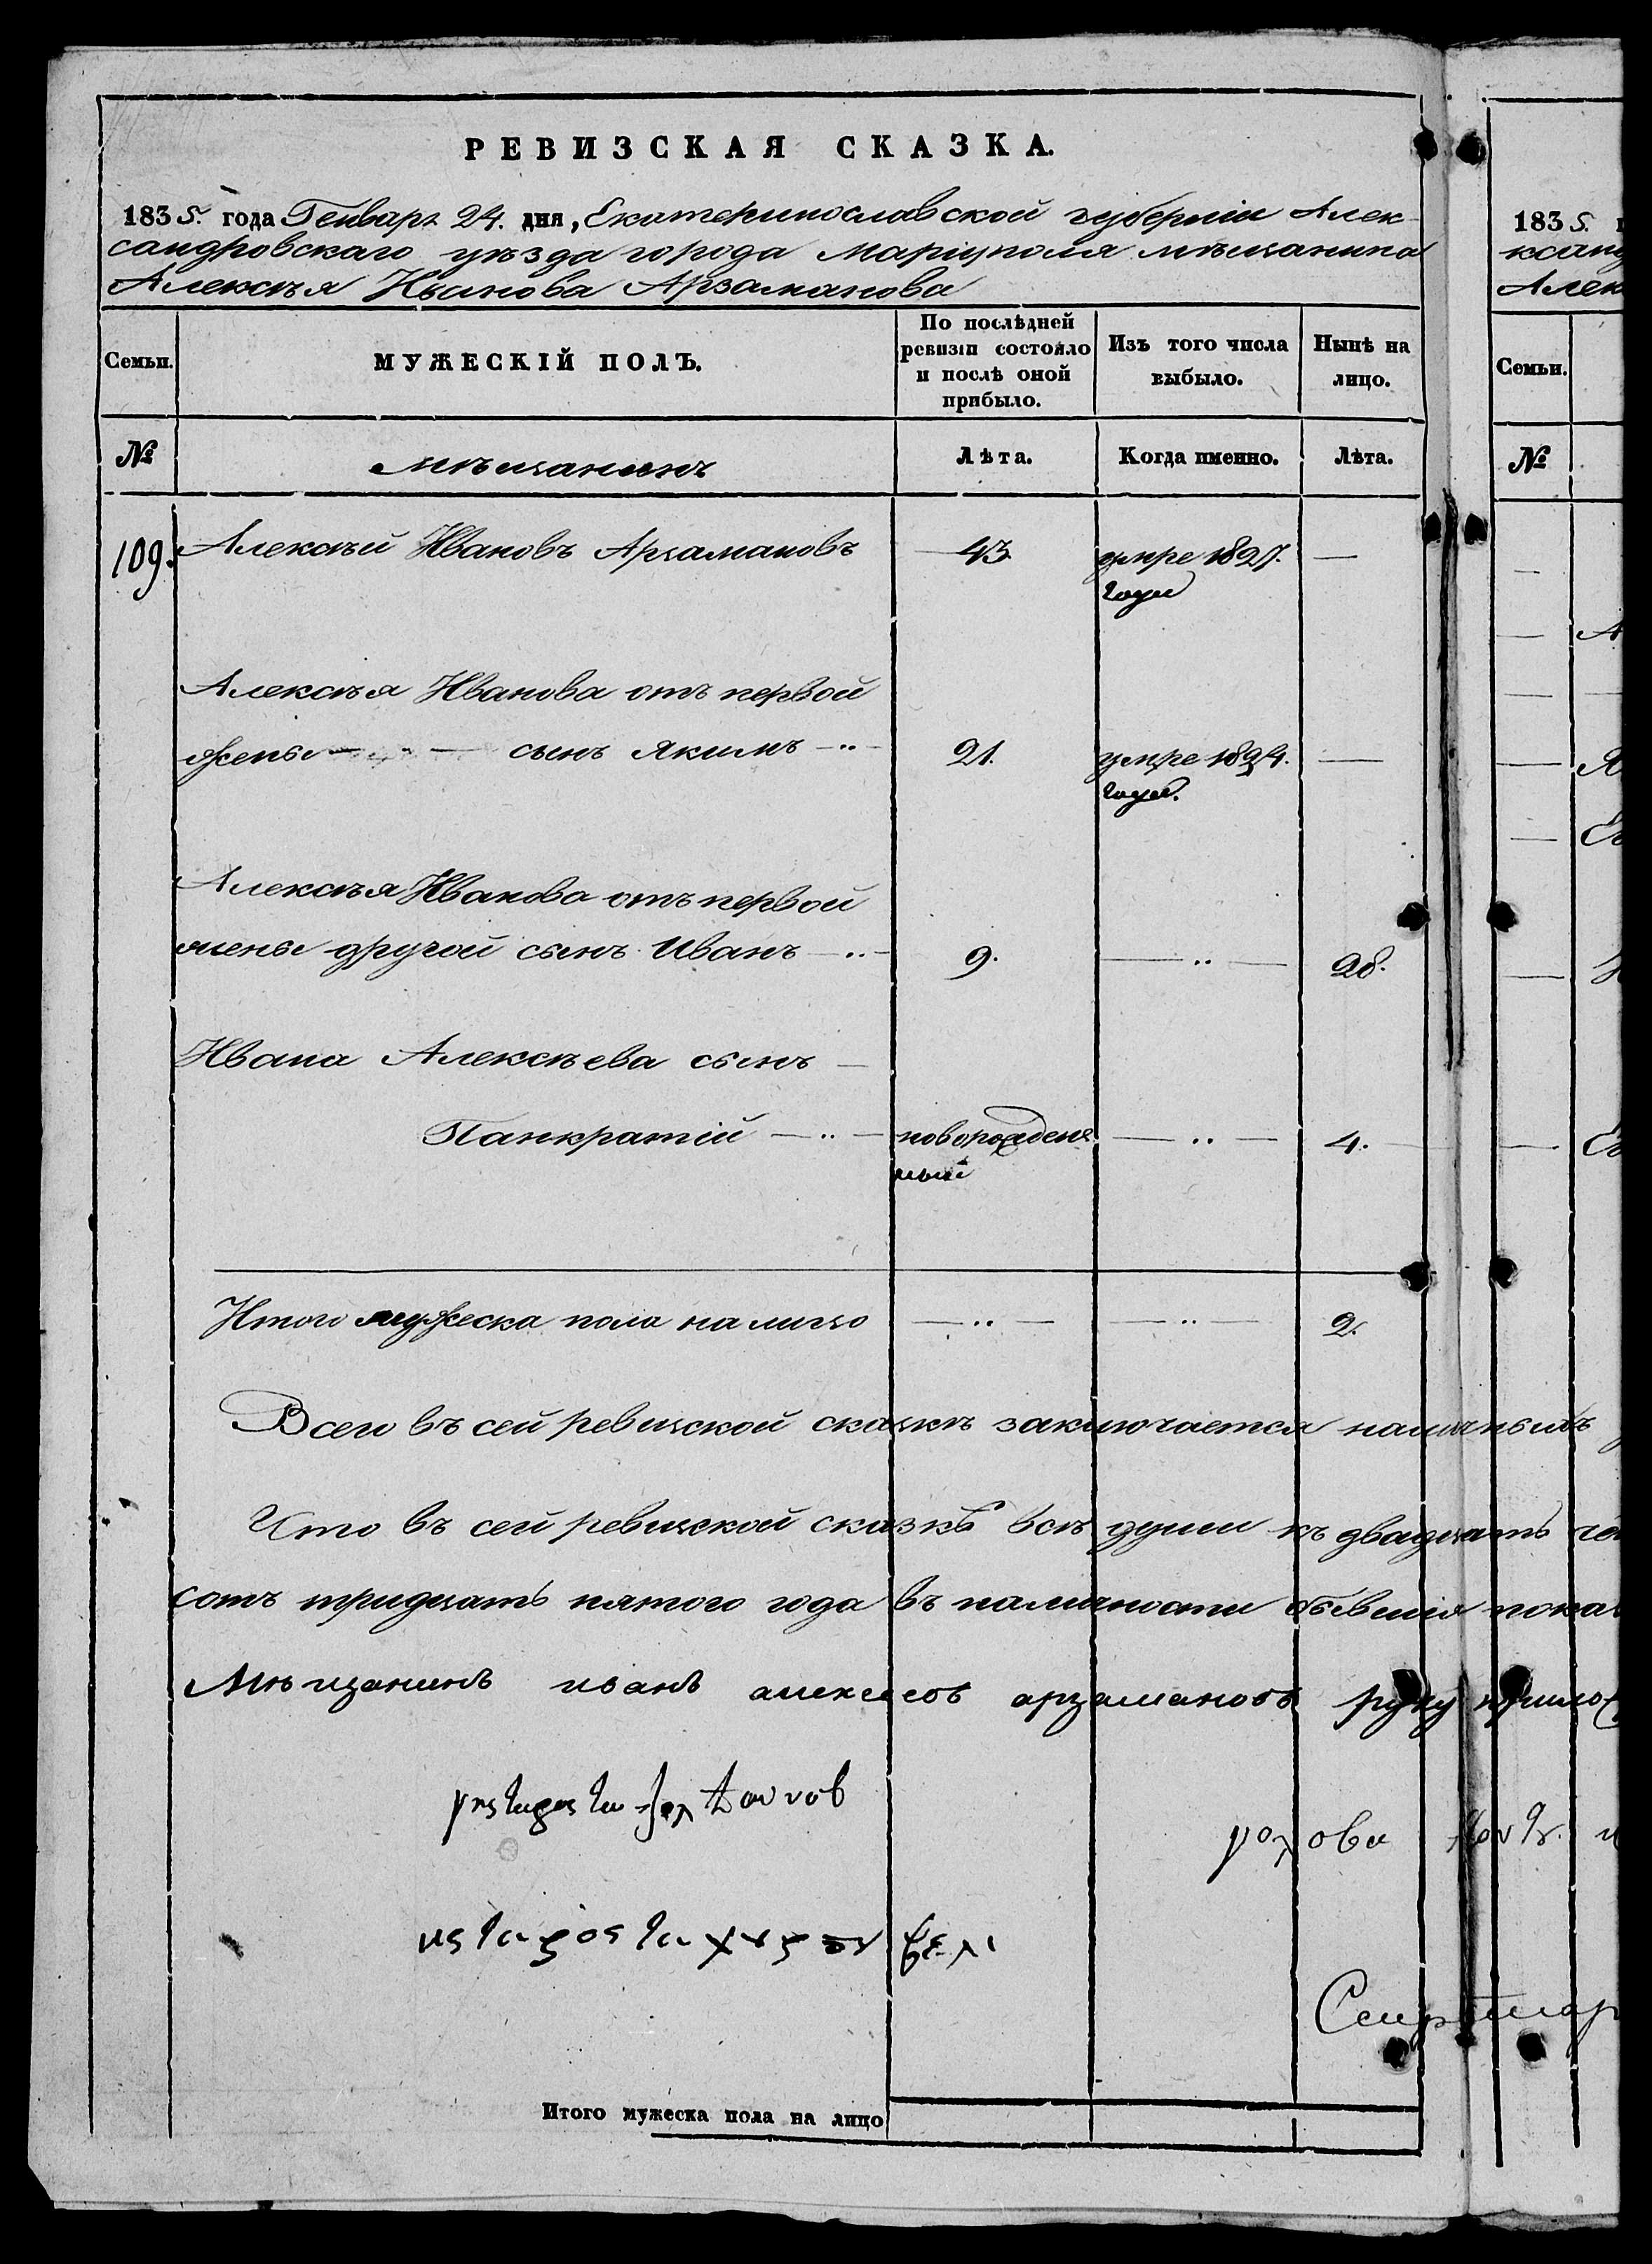 РЕВИЗСКАЯ СКАЗКА.
1835. года Генваря 24. дня, Екатеринославской губерніи Алек-
сандровскаго уѣзда города Маріуполя мѣщанина
Алексѣя Иванова Арзаманова
Семьи.
МУЖЕСКІЙ ПОЛЪ.
По послѣдней ревизіи состояло и послѣ оной прибыло.
Изъ того числа выбыло.
Нынѣ на лицо.
№ мѣщанинъ Лѣта. Когда именно. Лѣта.
109. Алексѣй Ивановъ Арзамановъ 43 умре 1827. —
года
Алексѣя Иванова отъ первой
жены — сынъ Якимъ —..— 21. умре 1824. —
года.
Алексѣя Иванова отъ первой
жены другой сынъ Иванъ —..— 9. —..— 28.
Ивана Алексѣева сынъ —
Панкратій —..— новорожден- —..— 4.
ный
Итого мужеска пола на лицо —..— —..— 2.
Всего въ сей ревизской сказкѣ заключается наличныхъ
Что въ сей ревизской сказкѣ всѣ души къ двадцать
сотъ тридцать пятого года въ наличности
Мѣщанинъ иванъ алексеевъ арзамановъ руку
Итого мужеска пола на лицо
1835.
Семьи.
№